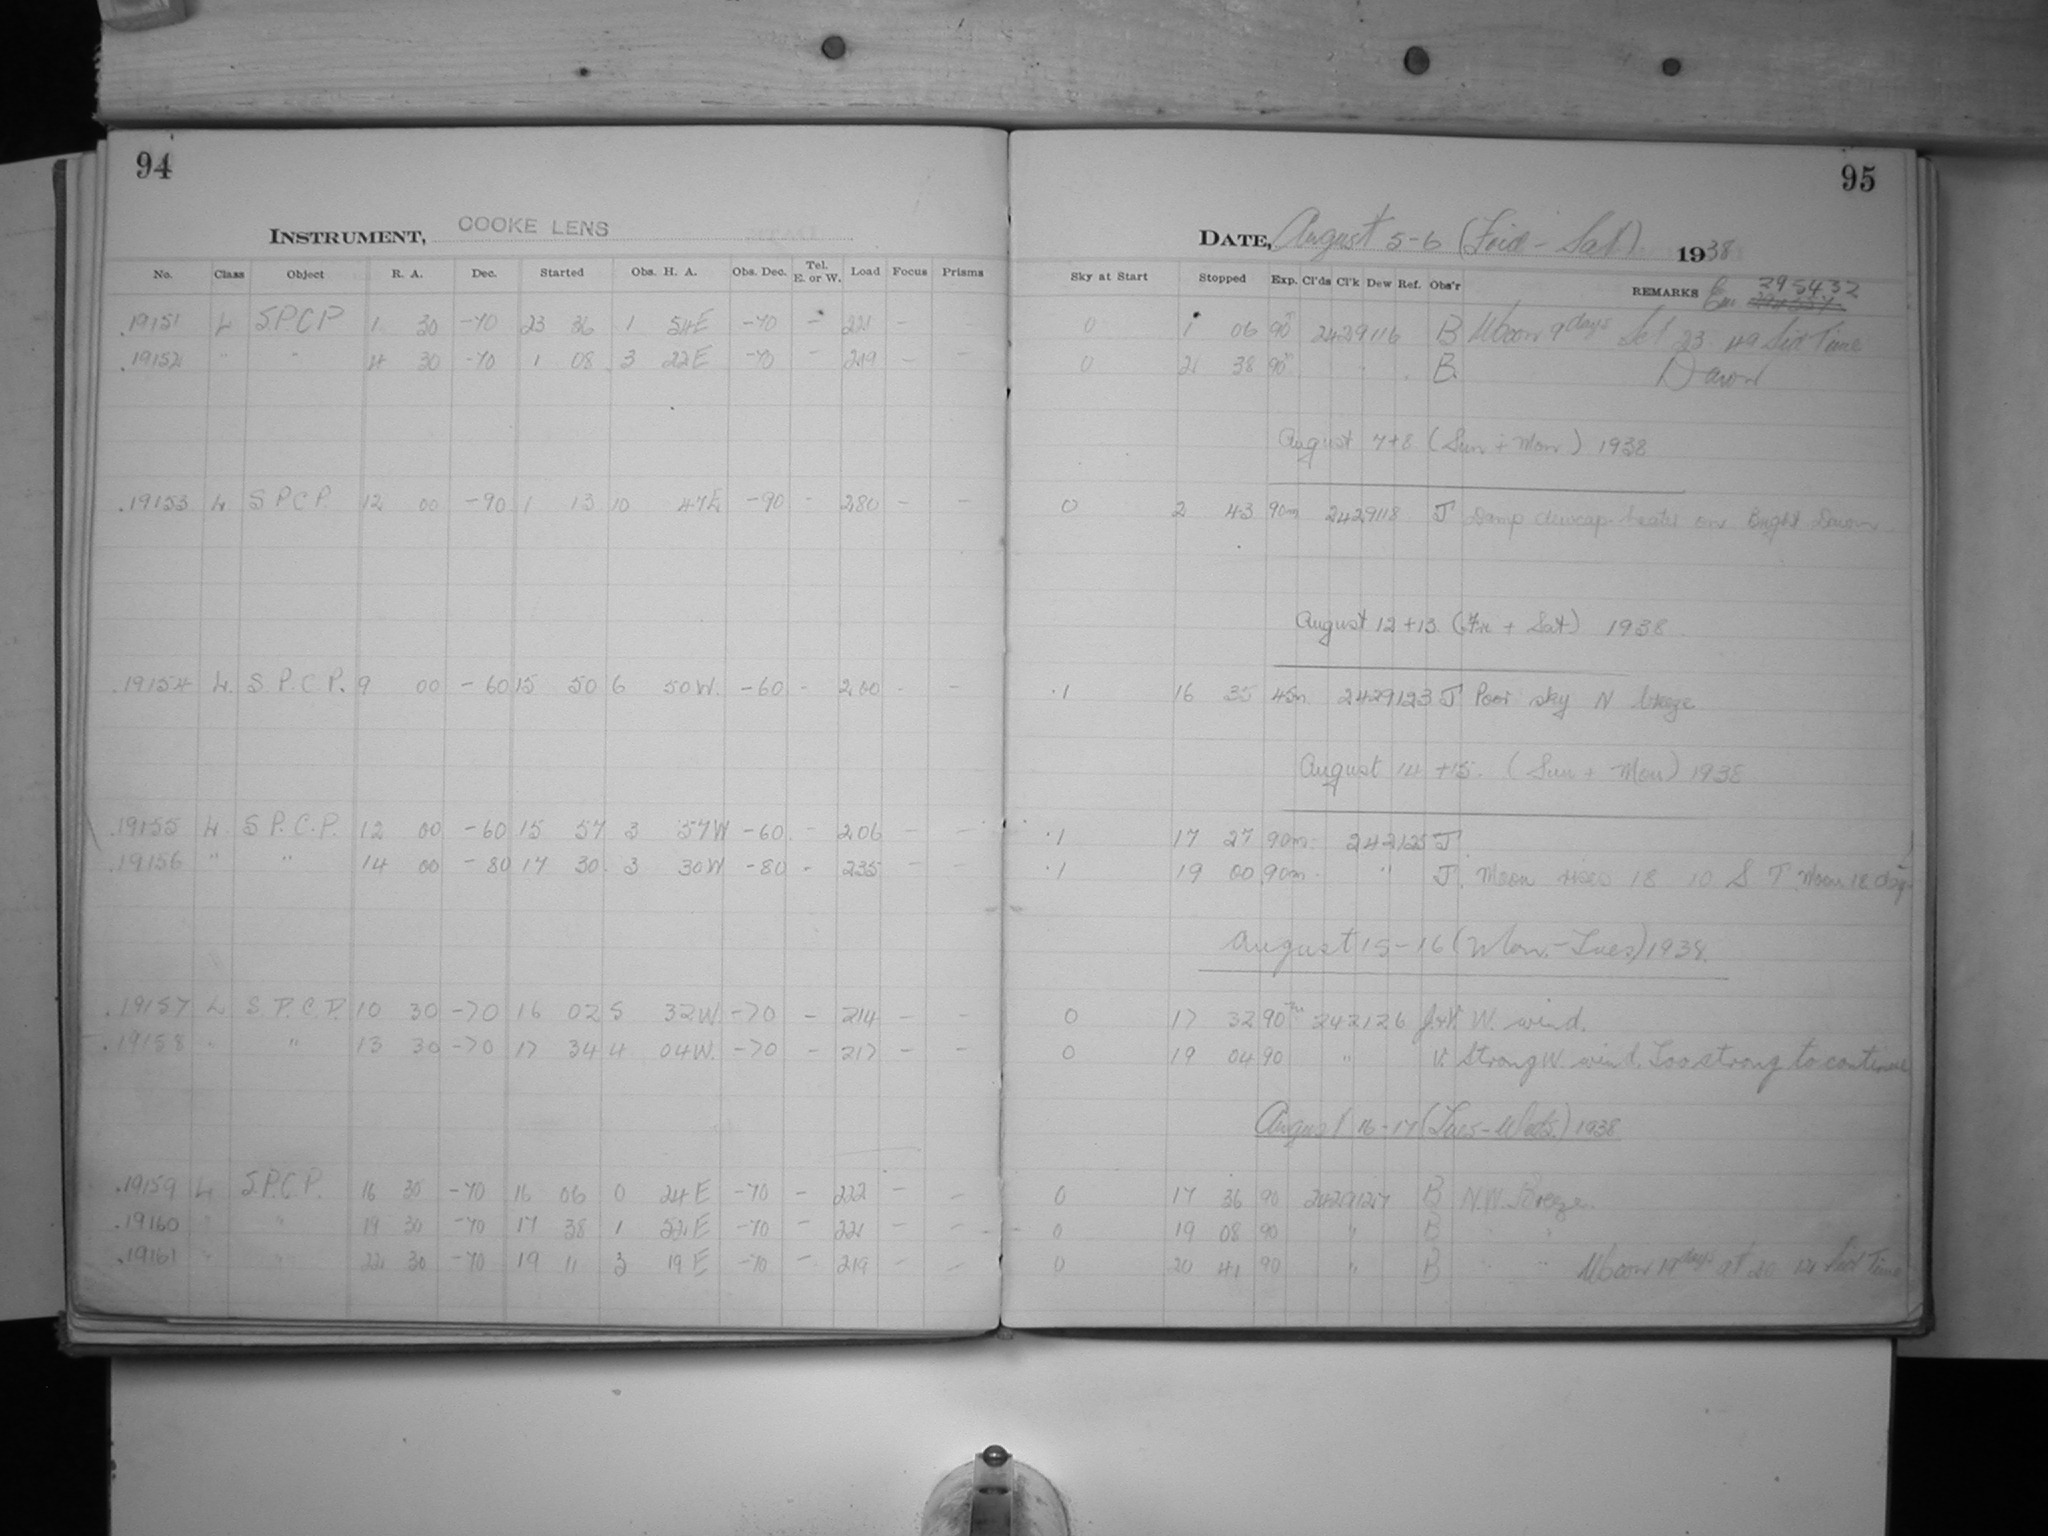 94
INSTRUMENT, COOKE LENS
No. Class Object R. A. Dec. Started Obs. H. A. Obs. Dec. Tel. E. or W. Load Focus Prisms
.19151 L S.P.C.P 1 30 -70 23 36 1 54E -70 - 221 -
.19152 " " 4 30 -70 1 08 3 22E -70 - 219 -
.19153 L S P C P. 12 00 -90 1 13 10 47E -90 - 280 - -
.19154 L. S. P. C. P. 9 00 -60 15 50 6 50W. -60 - 200 - -
.19155 L. S P. C. P. 12 00 -60 15 57 3 57W -60. - 206 - -
.19156 " " 14 00 -80 17 30. 3 30W -80 - 235 - -
.19157 L S. P. C. P. 10 30 -70 16 02 5 32W. -70 - 214 - -
.19158 " " 13 30 -70 17 34 4 04W. -70 - 217 - -
.19159 L S.P.C.P. 16 30 -70 16 06 0 24E -70 - 222 - -
.19160 " " 19 30 -70 17 38 1 52E -70 - 221 - -
.19161 " " 22 30 -70 19 11 3 19E -70 - 219 - -
95
DATE, August 5-6 (Frid - Sat) 1938
Sky at Start Stopped Exp. Cl'ds Cl'k Dew Ref. Obs'r REMARKS 295432
0 1 06 90m 2429116 B Moon 9 days Set 23 49 Sid Time
0 2 38 90m " B. Dawn
August 7+8 (Sun + Mon) 1938
0 2 43 90m 2429118 J Damp dewcap heater on Bright Dawn
August 12+13. (Fri + Sat) 1938.
.1 16 35 45m 2429123 J Poor sky N breeze
August 14 +15. (Sun + Mon) 1938
.1 17 27 90m. 242125 J
.1 19 00 90m. " J. Moon rises 18 10 S T Moon 18 days
August 15-16 (Mon.-Tues) 1938.
0 17 32 90m 242126 W. wind.
0 19 04 90 " V. Strong W. wind. Too strong to continue
August 16-17 (Tues-Weds.) 1938
0 17 36 90 2429127 B N.W. Breeze.
0 19 08 90 " B " "
0 20 41 90 " B " " Moon 19 days at 20 14 Sid Time